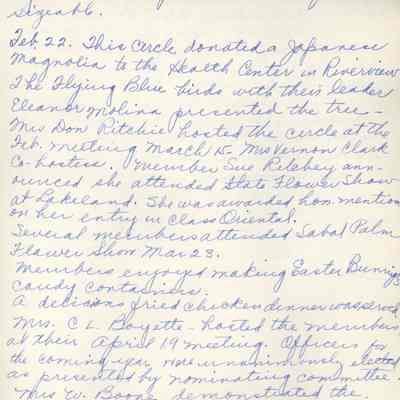 sizeable.
Feb. 22. This Circle donated a Japanese
Magnolia to the Health Center in Riverview
The Flying Blue birds with their leader
Eleanor Molina presented the tree -
Mrs Don Ritchie hosted the circle at the
Feb. meeting March 15 - Mrs Vernon Clark
Co-hostess. Member Sue Relchey ann-
ounced she attended State Flower Show
at Lakeland. She was awarded hon. mention
on her entry in Class Oriental.
Several members attended Sabal Palm
Flower Show Mar 23.
Members enjoyed making Easter Bunnys
candy containers.
A delicious fried chicken dinner was served
Mrs. C L Boyette - hosted the members
at their April 19 meeting. Officers for
the coming year were unanimously elected
as presented by nominating committee.
Mrs W. Boone demonstrated the